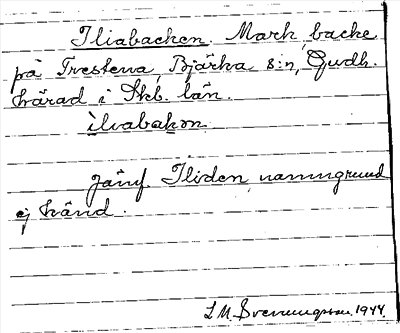 Iliabacken. Mark, backe
på Trestena, Bjärka s:n, Gudh.
härad i Skb. län.
ìlvabakon
Jämf. Iliden, namngrund
ej känd.
L. M. Svenungsson. 1944.